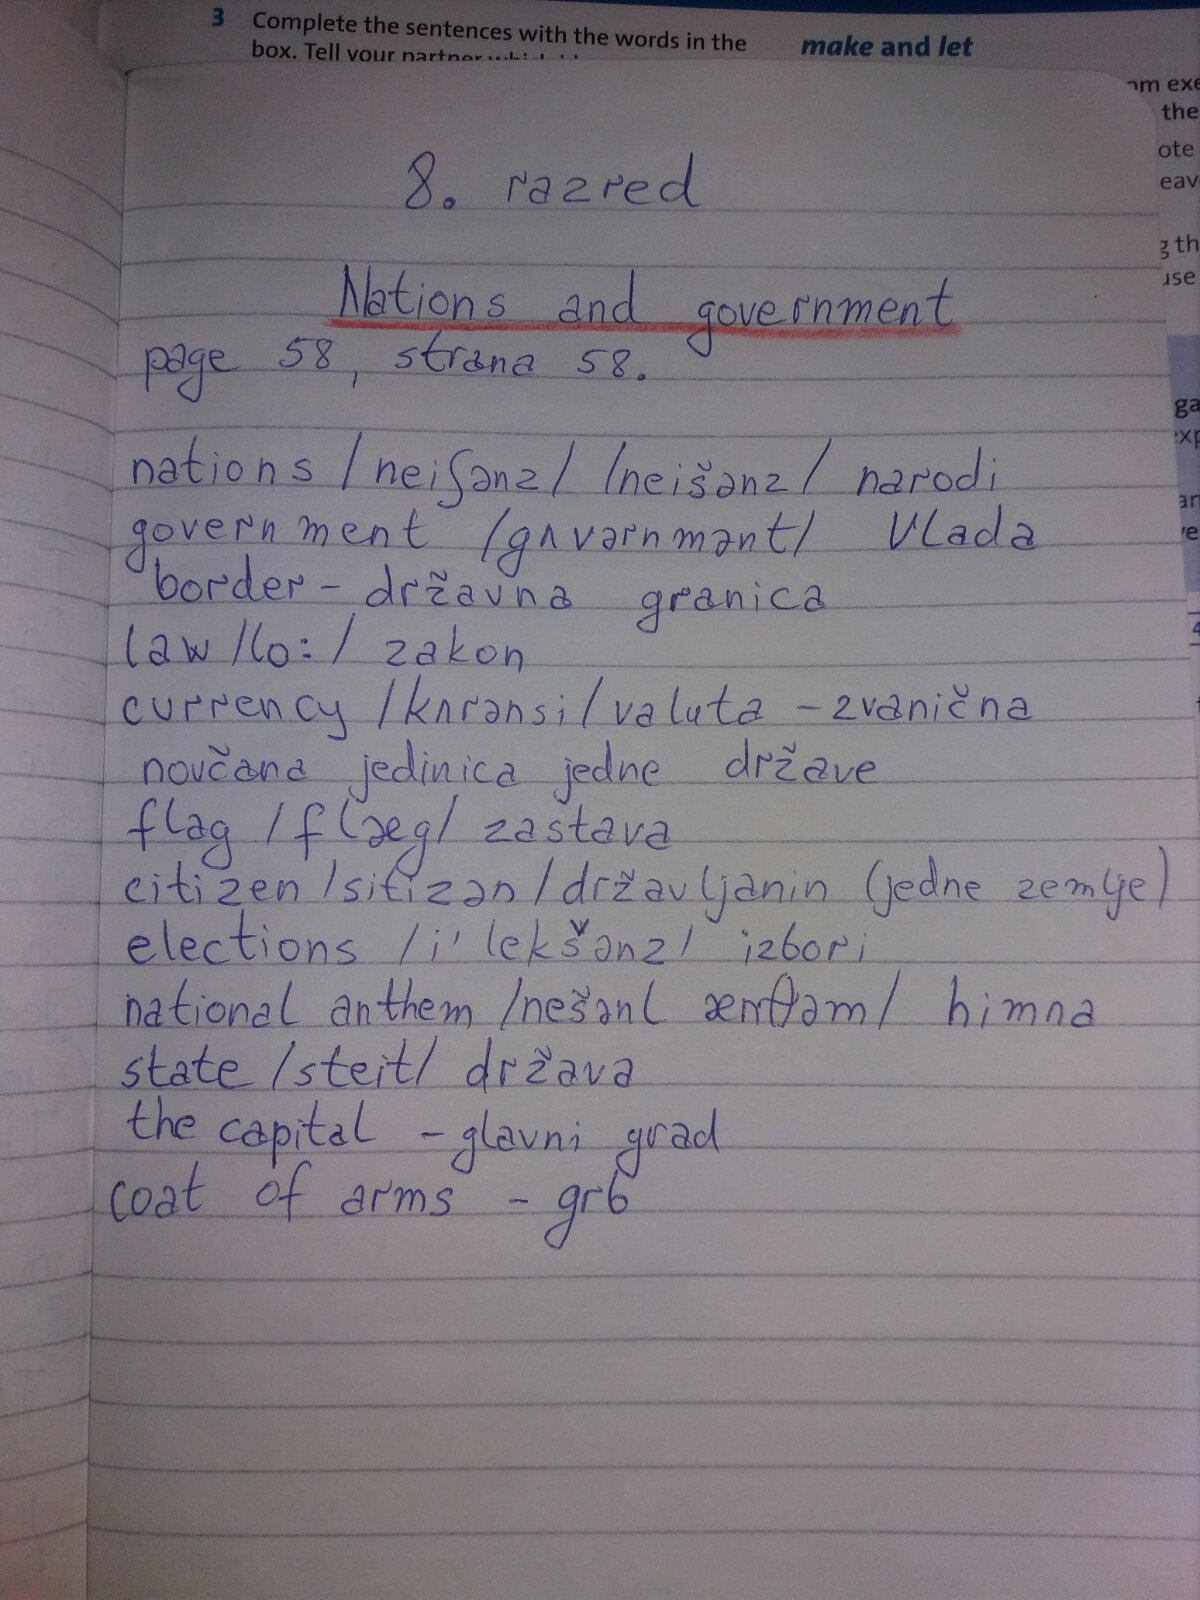 3 Complete the sentences with the words in the
box. Tell your partner
make and let
om exe
the
ote
eav
g th
use
8. razred
Nations and government
page 58, strana 58.
nations /neiʃənz/ /neišənz/ narodi
government /gʌvərnmənt/ Vlada
border – državna granica
law /lo:/ zakon
currency /kʌrənsi/ valuta – zvanična
novčana jedinica jedne države
flag /flæg/ zastava
citizen /sitizən/ državljanin (jedne zemlje)
elections /i'lekšənz/ izbori
national anthem /nešənl ænθəm/ himna
state /steit/ država
the capital – glavni grad
coat of arms – grb